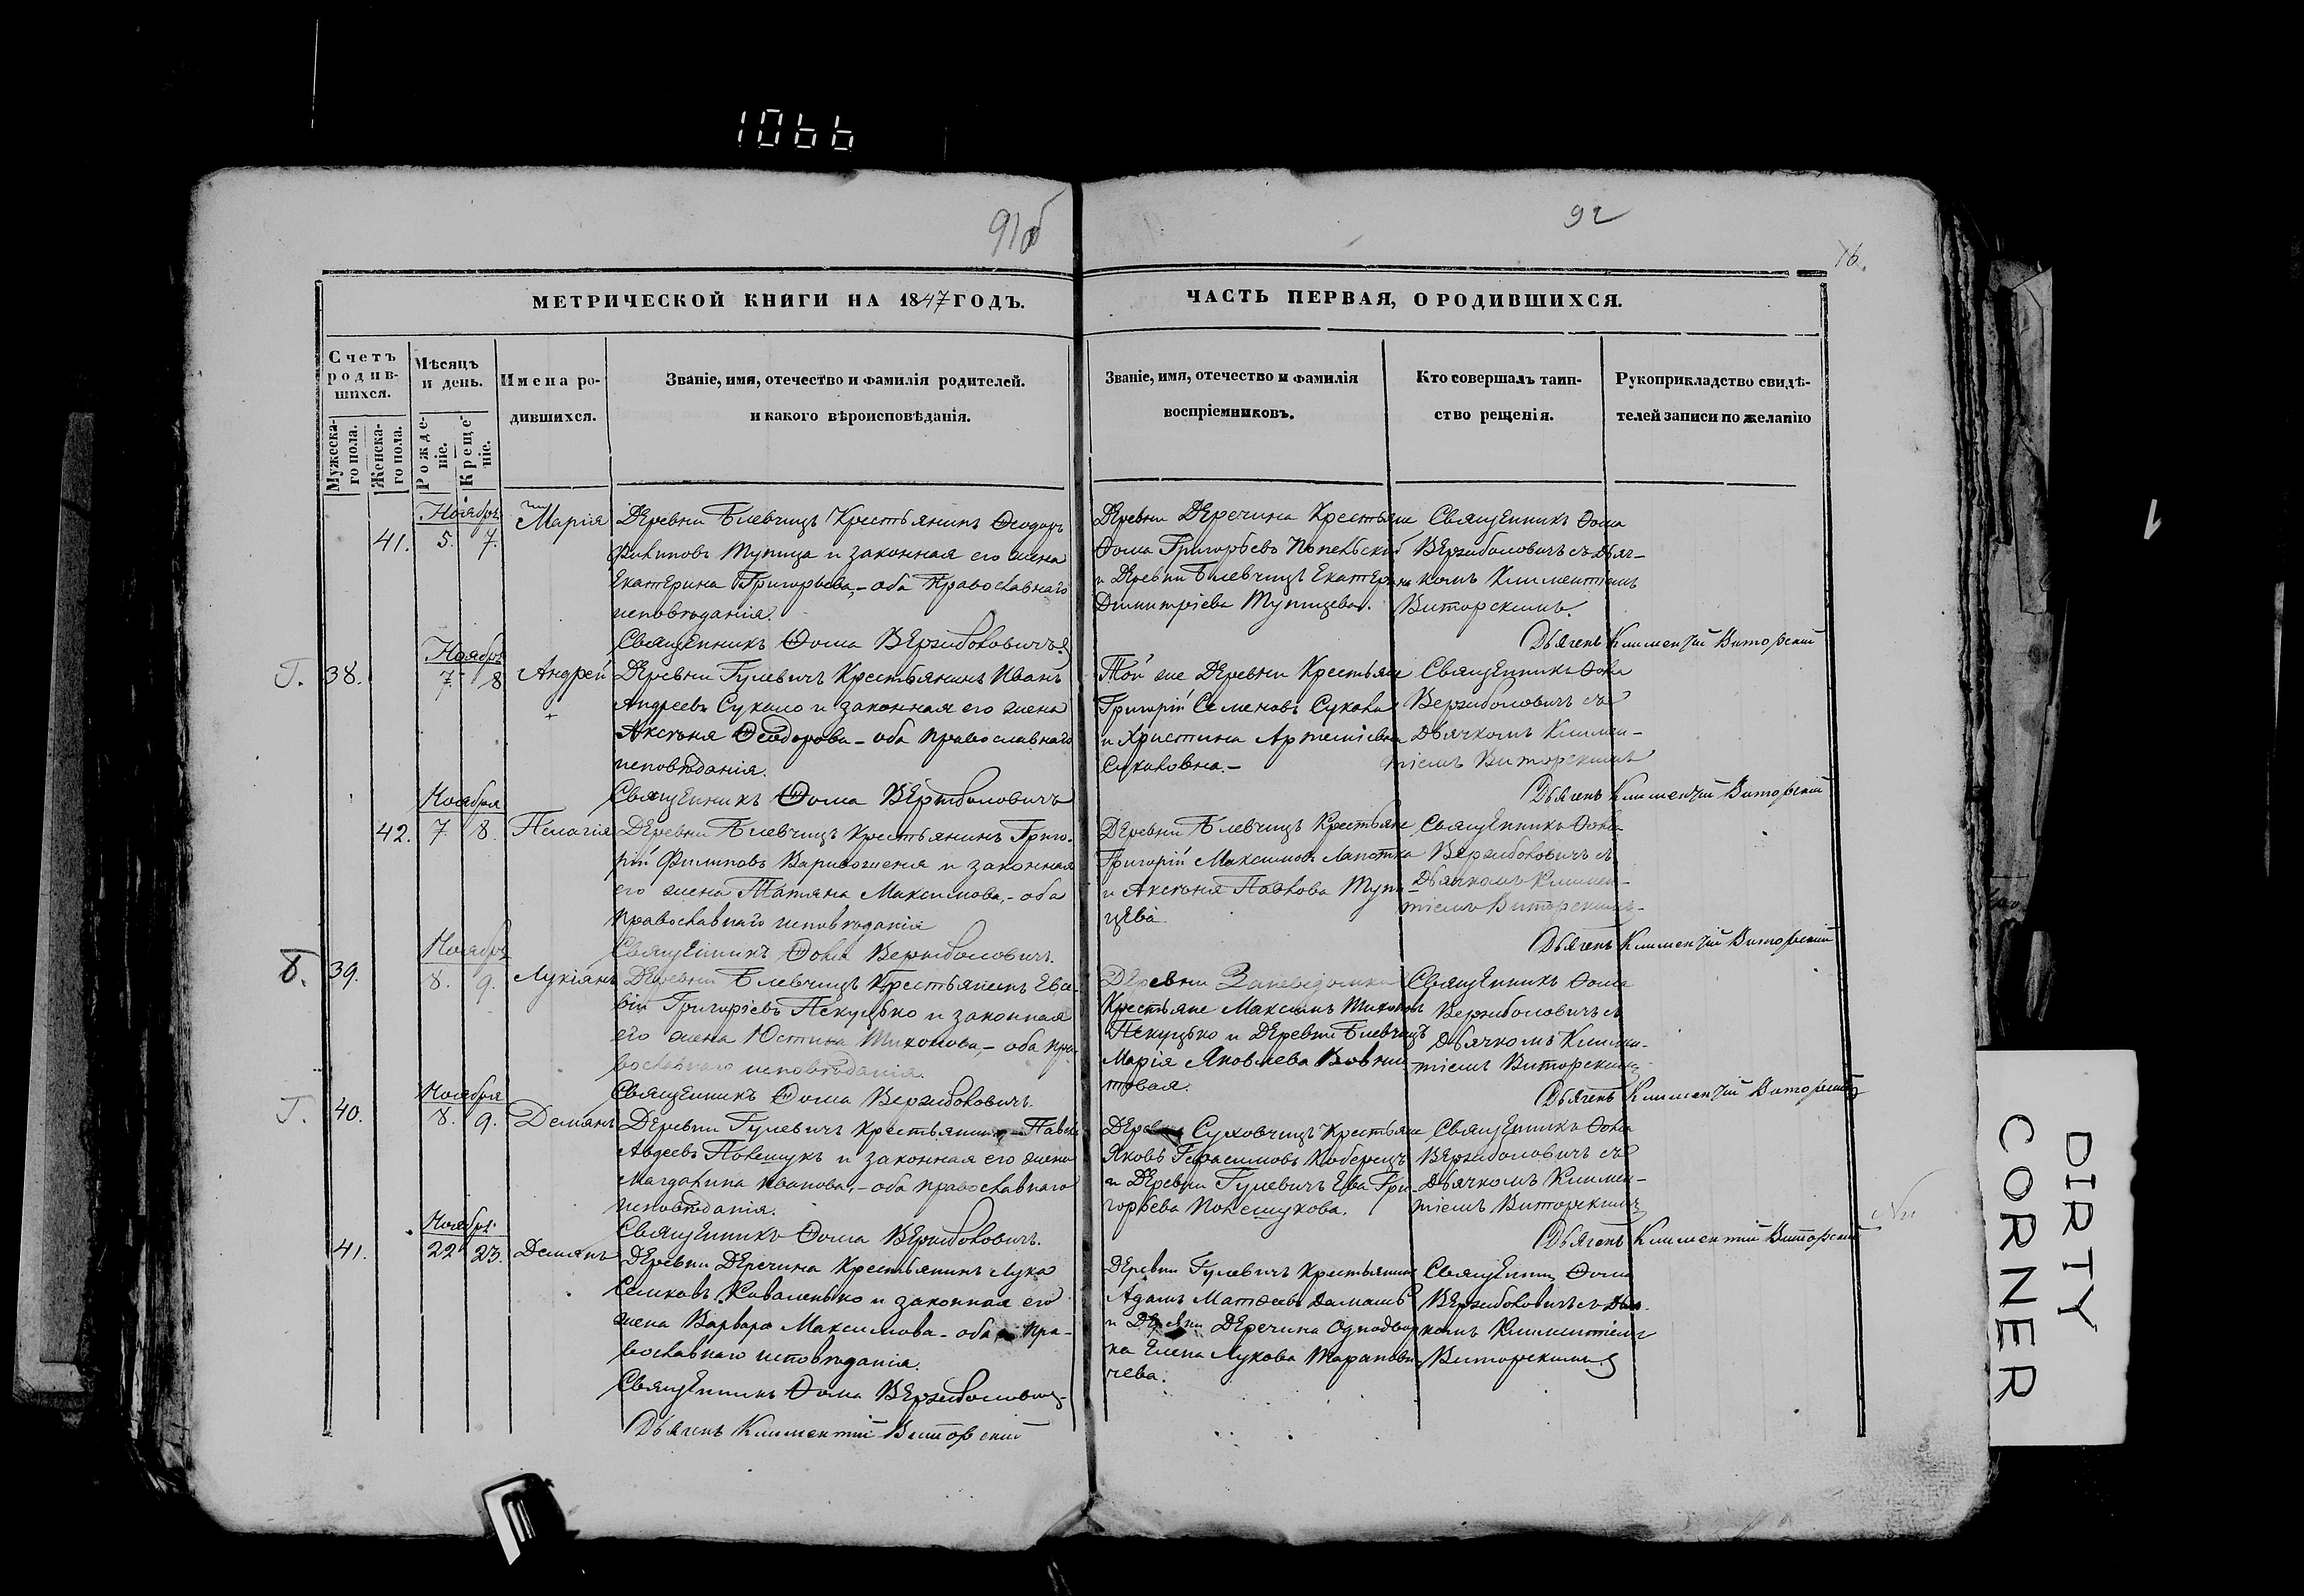 1066
91об
92
76.
МЕТРИЧЕСКОЙ КНИГИ НА 1847 ГОДЪ.
ЧАСТЬ ПЕРВАЯ, О РОДИВШИХСЯ.
Счетъ родив-
шихся.
Мужеска-
го пола.
Женска-
го пола.
Мѣсяцъ
и день.
Рожде-
ніе.
Креще-
ніе.
Имена ро-
дившихся.
Званіе, имя, отечество и фамилія родителей.
и какого вѣроисповѣданія.
Званіе, имя, отечество и фамилія
воспріемниковъ.
Кто совершалъ таин-
ство рещенія.
Рукоприкладство свидѣ-
телей записи по желанію
Ноябрь
41. 5. 7. Марія
Деревни Блевчицъ Крестьянинъ Ѳеодоръ
Филиповъ Тупица и законная его жена
Екатерина Григорьева,- оба Православнаго
исповѣданія.
Священникъ Ѳома Вержболовичъ
Деревни Деречина Крестьяне
Ѳома Григорьевъ Попельскій
и Деревни Блевчицъ Екатерина
Димитріева Тупицева.
Священникъ Ѳома
Вержболовичъ съ Дьяч-
комъ Климентіемъ
Виторскимъ.
Дьячекъ Климентій Виторскій
Ноябрь
Г. 38. 7. 8 Андрей
Деревни Гулевичъ Крестьянинъ Иванъ
Андреевъ Сукало и законная его жена
Аксѣнія Ѳеодорова - оба православнаго
исповѣданія.
Священникъ Ѳома Вержболовичъ
Той же Деревни Крестьяне
Григорій Семеновъ Сукало
и Христина Артеміевна
Сукаловна.-
Священникъ Ѳома
Вержболовичъ съ
Дьячкомъ Климен-
тіемъ Виторскимъ
Дьячекъ Климентій Виторскій
Ноября
42. 7. 8. Пелагія
Деревни Блевчицъ Крестьянинъ Григо-
рій Филиповъ и законная
его жена Татяна Максимова,- оба
православнаго исповѣданія
Священникъ Ѳома Вержболовичъ.
Деревни Блевчицъ Крестьяне
Григорій Максимовъ Лапотка
и Аксѣнія Павлова Тупи-
цева
Священникъ Ѳома
Вержболовичъ съ
Дьячкомъ Климен-
тіемъ Виторскимъ-
Дьячекъ Климентій Виторскій
Ноябрь
Б. 39. 8. 9. Лукіянъ
Деревни Блевчицъ Крестьянинъ Евсе-
вій Григоріевъ Пекутько и законная
его жена Юстина Тихонова,- оба пра-
вославнаго исповѣданія.
Священникъ Ѳома Вержболовичъ.
Деревни
Крестьяне Максимъ Тихоновъ
Пекутько и Деревни Блевчицъ
Марія Яковлева
Священникъ Ѳома
Вержболовичъ съ
Дьячкомъ Климен-
тіемъ Виторскимъ
Дьячекъ Климентій Виторскій
Ноября
Г. 40. 8. 9. Демянъ
Деревни Гулевичъ Крестьянинъ Павелъ
Авдеевъ Полещукъ и законная его жена
Магдалина Иванова,- оба православнаго
исповѣданія.
Священникъ Ѳома Вержболовичъ.
Деревни Суховчицъ Крестьяне
Яковъ Герасимовъ Коберецъ
и Деревни Гулевичъ Ева Гри-
горьева Полещукова.
Священникъ Ѳома
Вержболовичъ съ
Дьячкомъ Климен-
тіемъ Виторскимъ
Дьячекъ Климентій Виторскій
Ноябрь
41. 22 23. Демянъ
Деревни Деречина Крестьянинъ Лука
Коваленько и законная его
жена Варвара Максимова - оба пра-
вославнаго исповѣданія.
Священникъ Ѳома Вержболовичъ
Дьячекъ Климентій Виторскій
Деревни Гулевичъ Крестьянинъ
Адамъ Матѳеевъ
и Деревни Деречина Однодвор-
ка Елена Лукова Таранови-
чева.
Священникъ Ѳома
Вержболовичъ съ Дьяч-
комъ Климентіемъ
Виторскимъ
DIRTY
CORNER
1